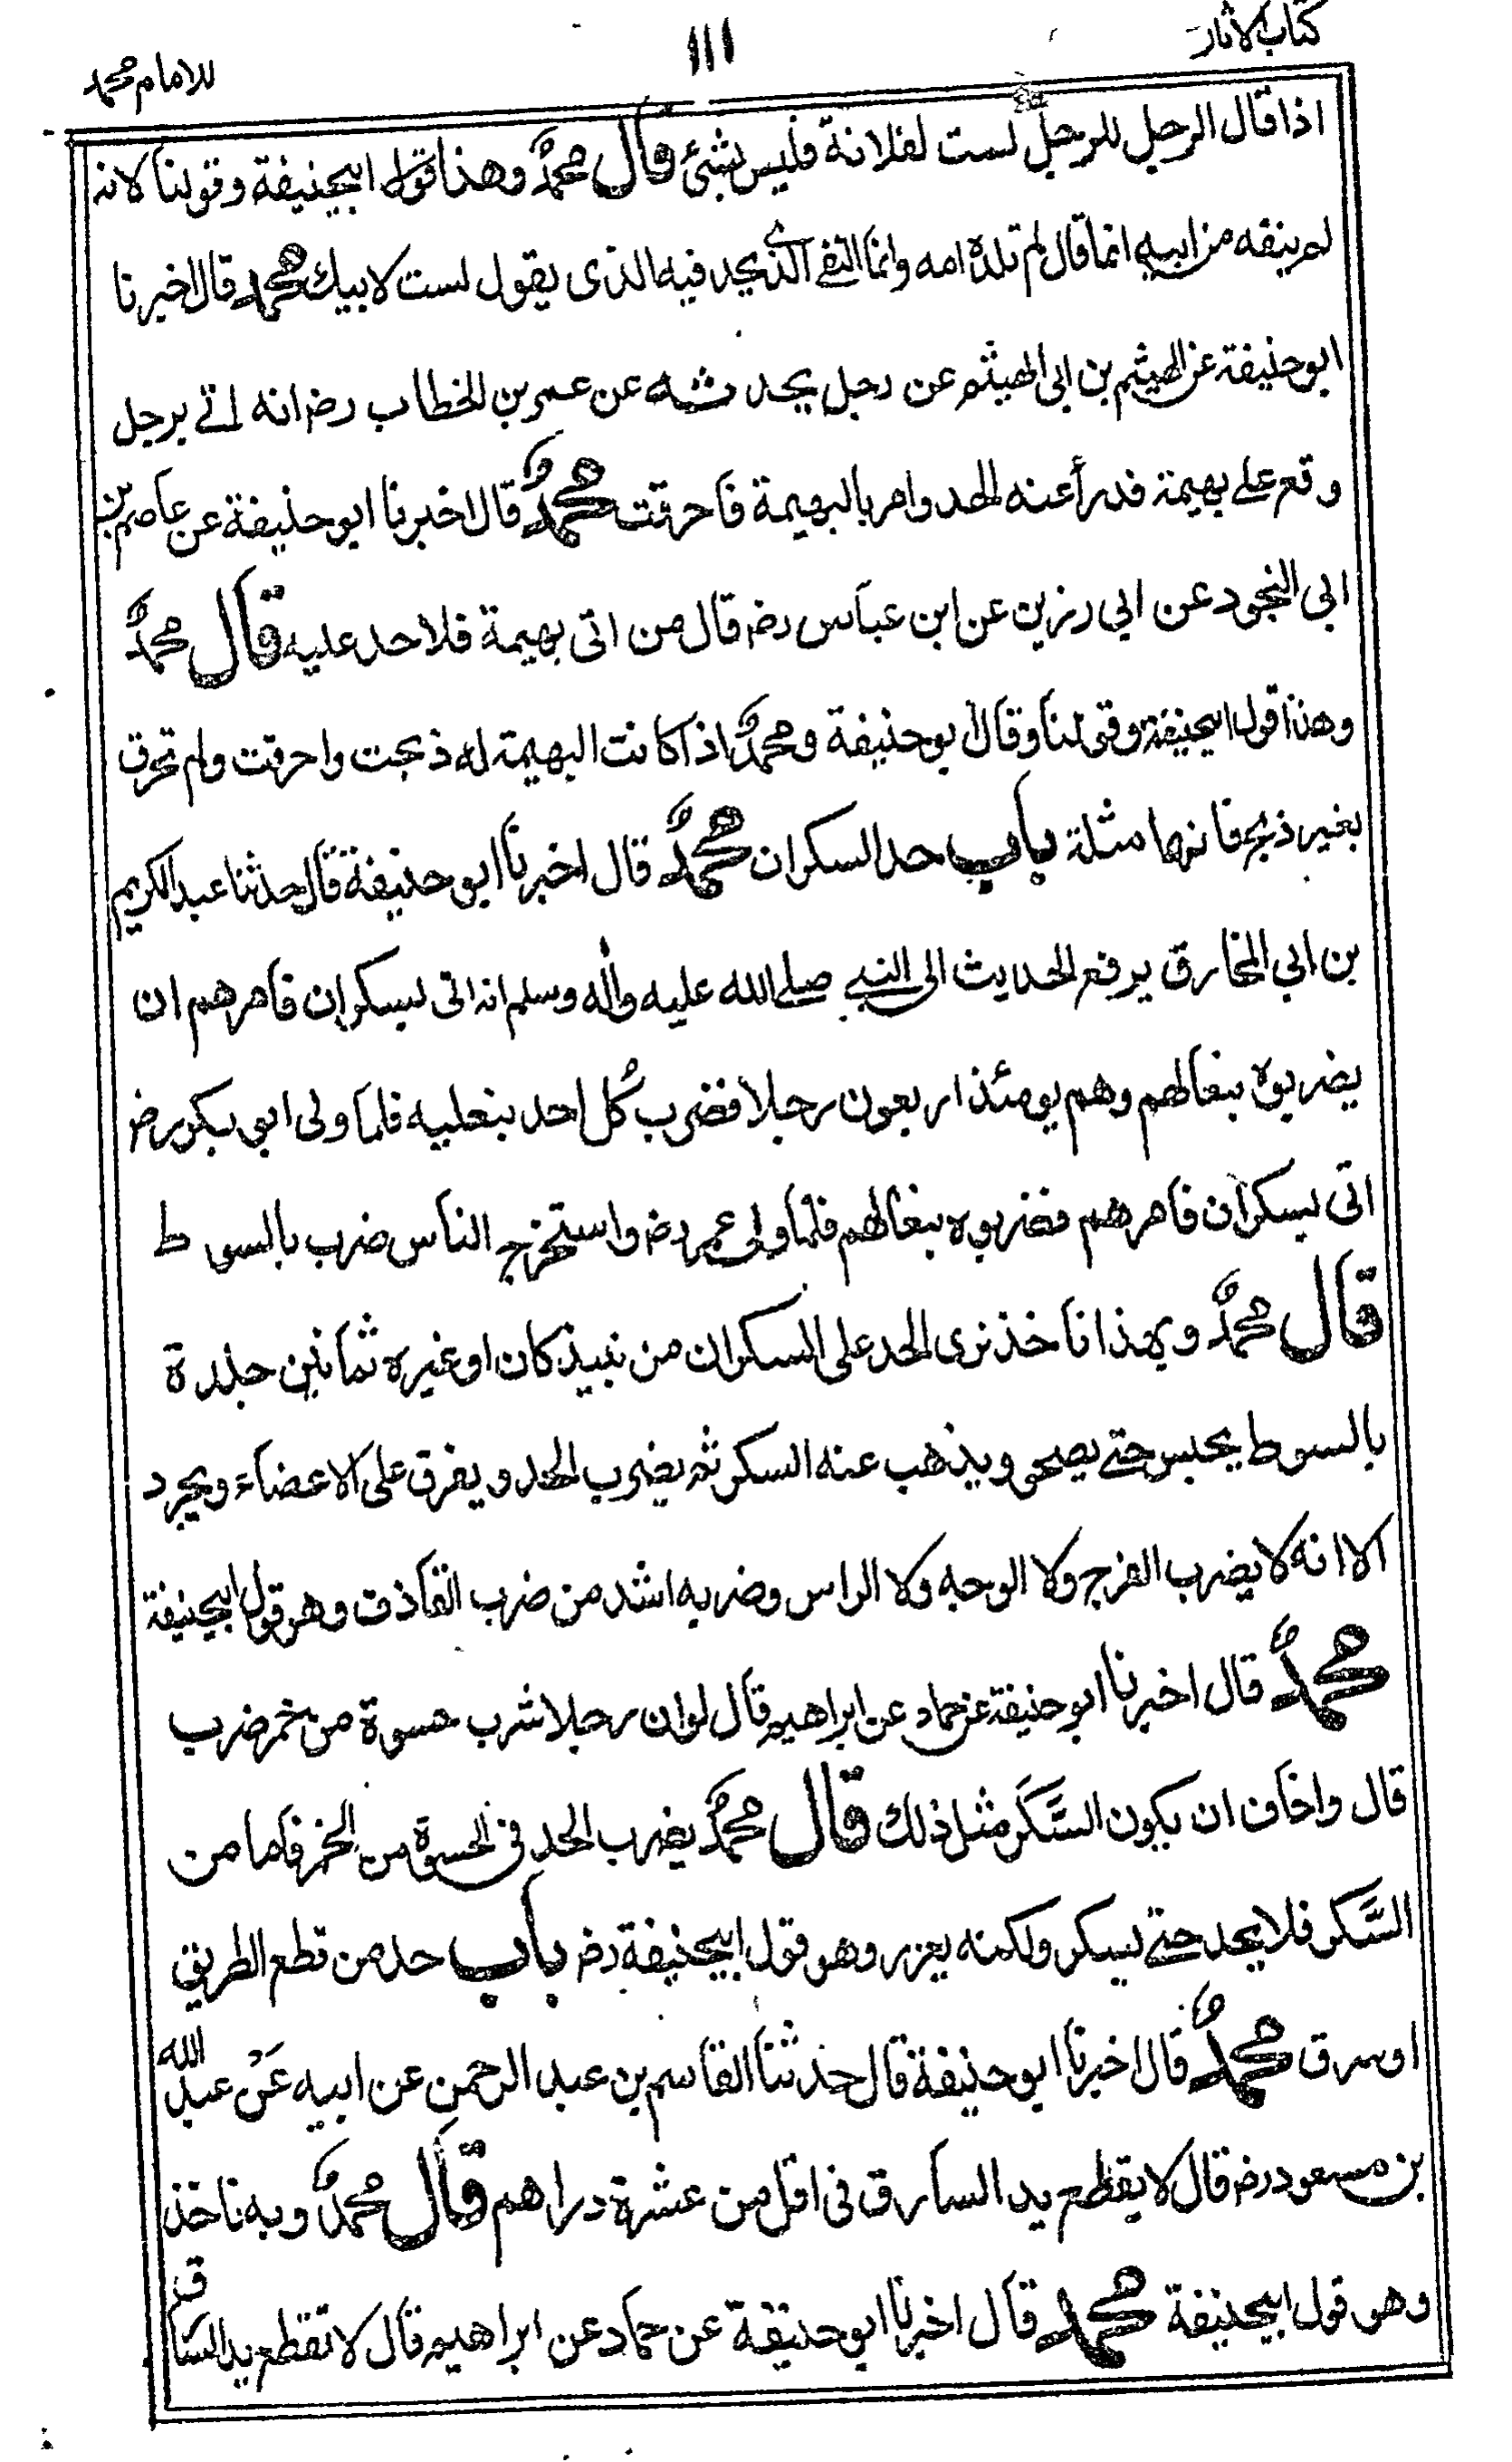 كتاب الاثار
١١١
للامام محمد
اذا قال الرجل للرجل لست لفلانة فليس بشئ قال محمدؒ وهذا قول ابيحنيفة وقولنا لانه
لم ينفه من ابيه انما قال لم تلده امه وانما النفے الذے يحد فيه الذى يقول لست لابيك محمد قال اخبرنا
ابو حنيفة عن الهيثم بن ابى الهيثم عن رجل يحدثه عن عمر بن الخطاب رضـ انه اتے برجل
وقع على بهيمة فدرأ عنه الحد وامر بالبهيمة فاحرقت محمدؒ قال اخبرنا ابو حنيفة عن عاصم بن
ابى النجود عن ابى رزين عن ابن عباس رضـ قال من اتى بهيمة فلا حد عليه قال محمدؒ
وهذا قول ابيحنيفة وقولنا وقال ابو حنيفة ومحمدؒ اذا كانت البهيمة له ذبحت واحرقت ولم تحرق
بغير ذبح فانها مثلة باب حد السكران محمدؒ قال اخبرنا ابو حنيفة قال حدثنا عبد الكريم
بن ابى المخارق يرفع الحديث الى النبے صلے الله عليه واٰله وسلم انه اتى بسكران فامرهم ان
يضربوه بنعالهم وهم يومئذ اربعون رجلا فضرب كُل احد بنعليه فلما ولى ابو بكر رضـ
اتى بسكران فامرهم فضربوه بنعالهم فلما ولى عمر رضـ واستخرج الناس ضرب بالسوط
قال محمدؒ وبهذا ناخذ نرى الحد على السكران من نبيذ كان او غيره ثمانين جلدة
بالسوط يحبس حتے يصحى ويذهب عنه السكر ثم يضرب الحد ويفرق على الاعضاء ويجرد
الا انه لا يضرب الفرج ولا الوجه ولا الراس وضربه اشد من ضرب القاذف وهو قول ابيحنيفة
محمدؒ قال اخبرنا ابو حنيفة عن حماد عن ابراهيم قال لو ان رجلا شرب حسوة من خمر ضرب
قال واخاف ان يكون السَّكَر مثل ذلك قال محمدؒ يضرب الحد فى الحسوة من الخمر فاما من
السَّكر فلا يحد حتے يسكر ولكنه يعزر وهو قول ابيحنيفة رضـ باب حد من قطع الطريق
او سرق محمدؒ قال اخبرنا ابو حنيفة قال حدثنا القاسم بن عبد الرحمن عن ابيه عَنْ عبد الله
بن مسعود رضـ قال لا يقطع يد السارق فى اقل من عشرة دراهم قال محمدؒ وبه ناخذ
وهو قول ابيحنيفة محمد قال اخبرنا ابو حنيفة عن حماد عن ابراهيم قال لا تقطع يد السارق